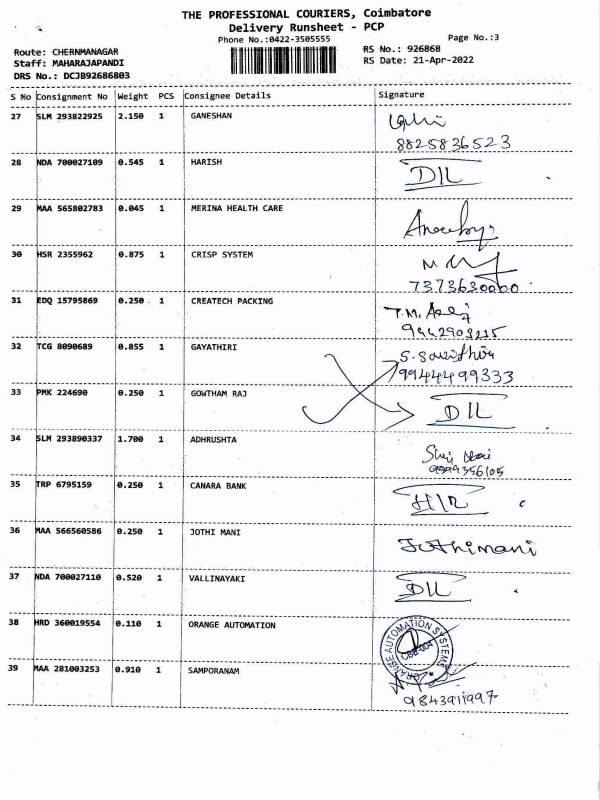 THE PROFESSIONAL COURIERS, Coimbatore
Delivery Runsheet - PCP
Phone No.:0422-3505555
Page No.:3
Route: CHERNMANAGAR
RS No.: 926868
Staff: MAHARAJAPANDI
RS Date: 21-Apr-2022
DRS No.: DCJB92686803
S No Consignment No Weight PCS Consignee Details Signature
27 SLM 293822925 2.150 1 GANESHAN
8825836523
28 NDA 700027109 0.545 1 HARISH DIL
29 MAA 565802783 0.045 1 MERINA HEALTH CARE
30 HSR 2355962 0.875 1 CRISP SYSTEM
7373630000
31 EDQ 15795869 0.250 1 CREATECH PACKING T.M.
9442903215
32 TCG 8090689 0.855 1 GAYATHIRI S.
9944499333
33 PMK 224690 0.250 1 GOWTHAM RAJ DIL
34 SLM 293890337 1.700 1 ADHRUSHTA
35 TRP 6795159 0.250 1 CANARA BANK
36 MAA 566560586 0.250 1 JOTHI MANI Jothimani
37 NDA 700027110 0.520 1 VALLINAYAKI DIL
38 HRD 360019554 0.110 1 ORANGE AUTOMATION
ORANGE AUTOMATION SYSTEMS
CBE-004
39 MAA 281003253 0.910 1 SAMPORANAM
9843911997